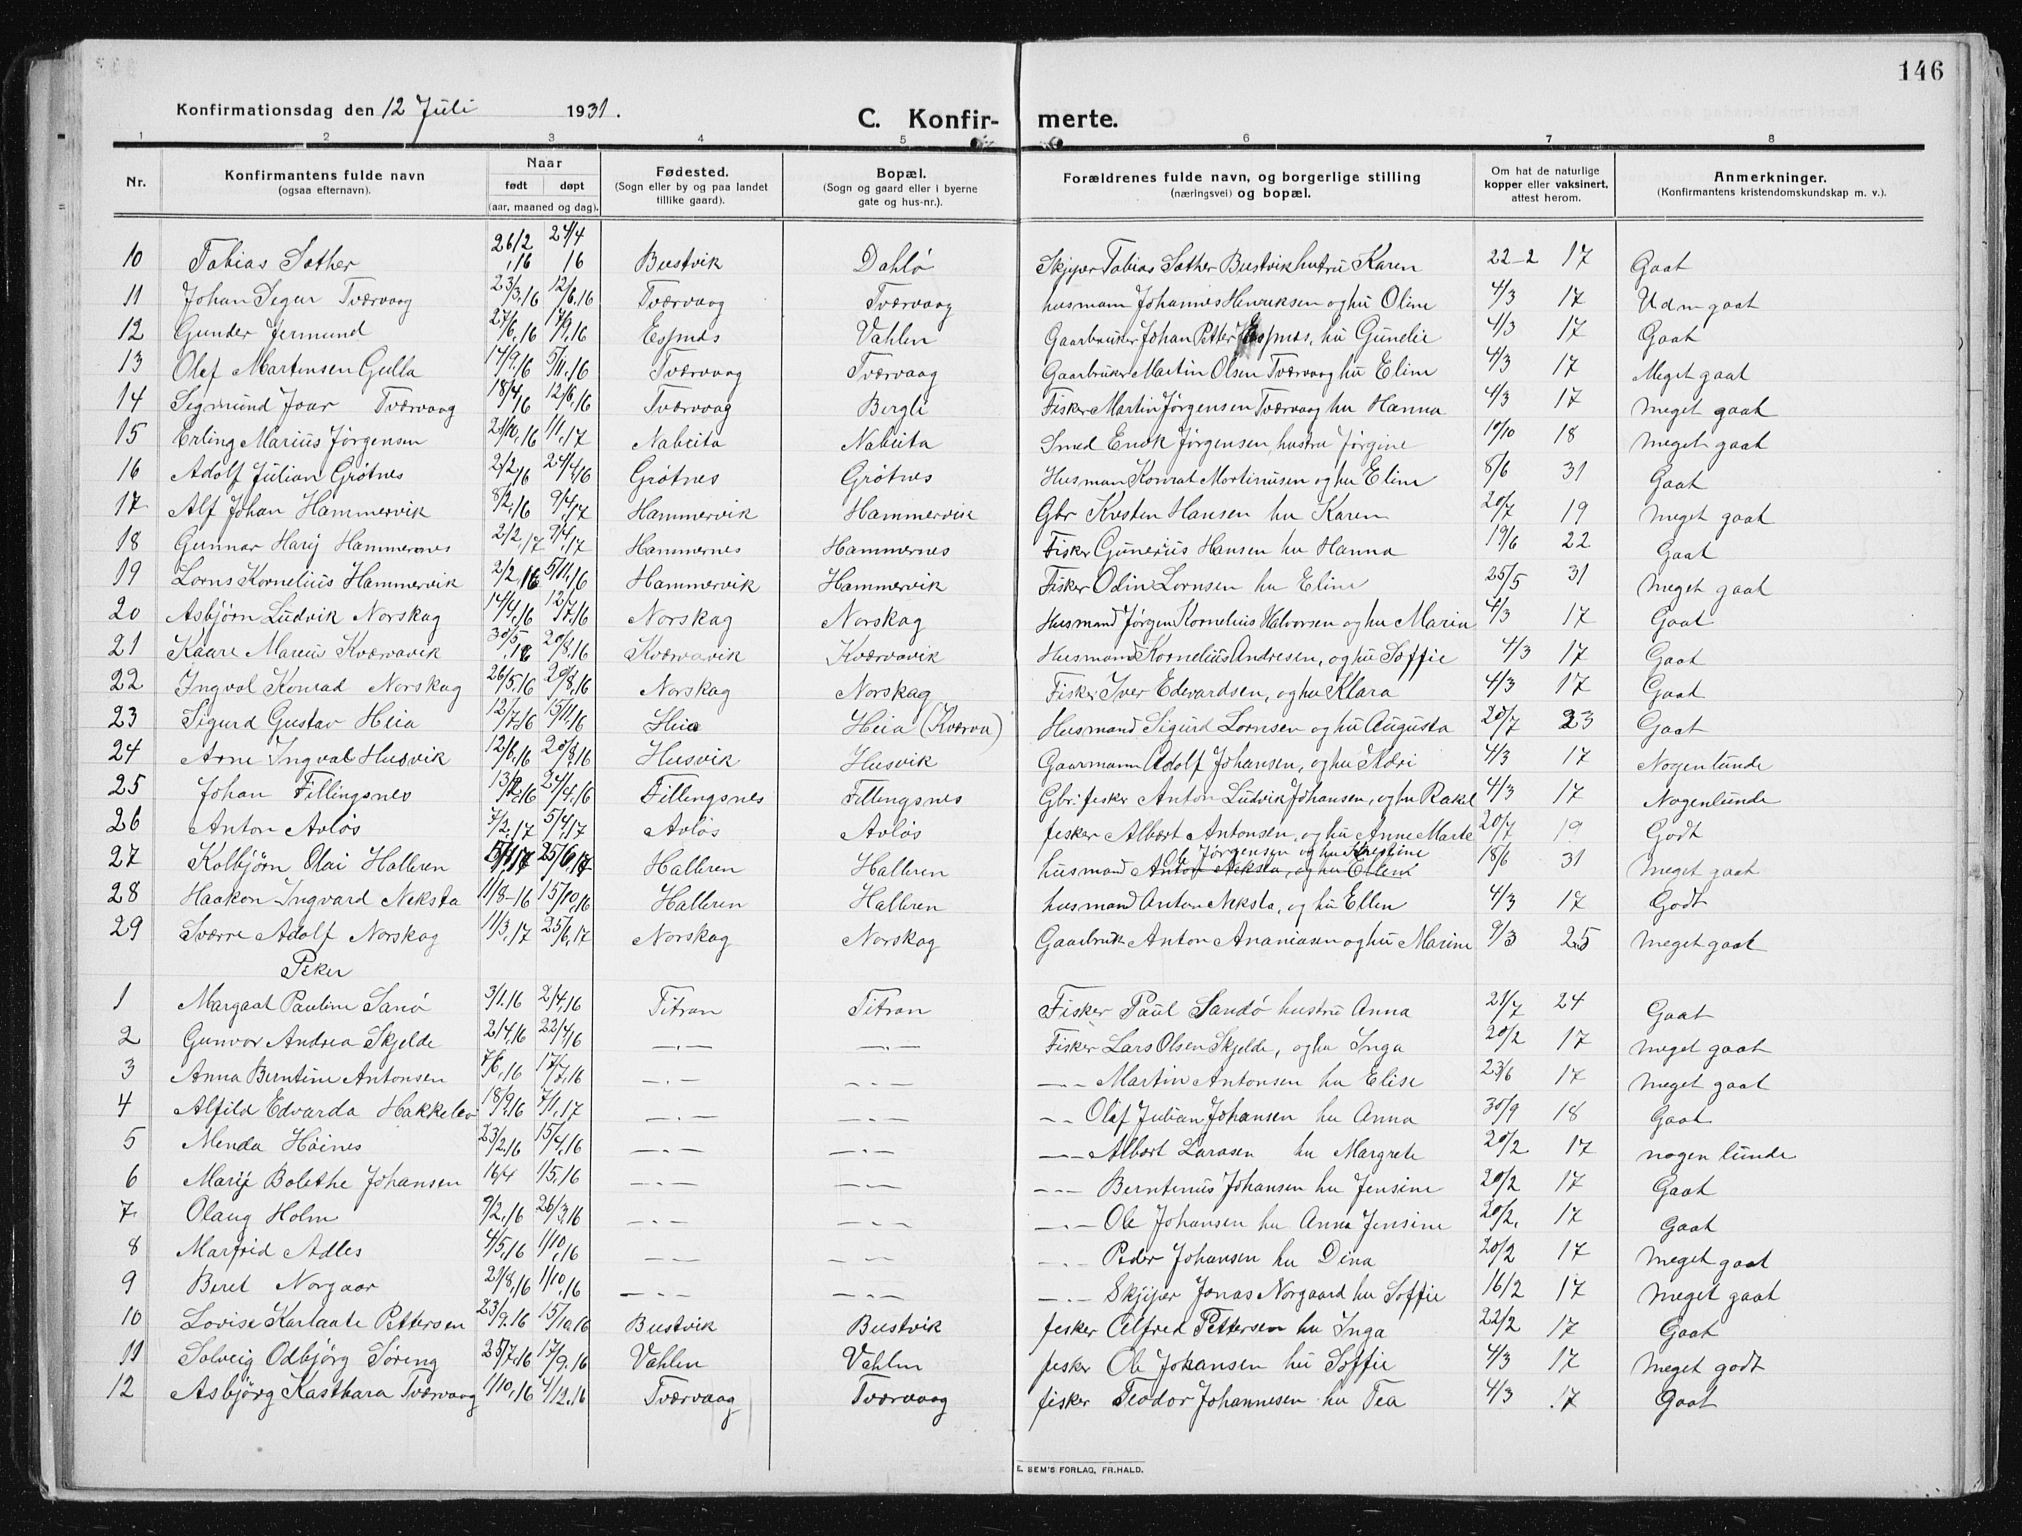 146
Konfirmationsdag den 12 Juli 1931.
C. Konfir- merte.
1 2 3 4 5 6 7 8
Nr. Konfirmantens fulde navn (ogsaa efternavn). Naar født døpt (aar, maaned og dag). Fødested. (Sogn eller by og paa landet tillike gaard). Bopæl. (Sogn og gaard eller i byerne gate og hus-nr.). Forældrenes fulde navn, og borgerlige stilling (næringsvei) og bopæl. Om hat de naturlige kopper eller vaksinert, attest herom. Anmerkninger. (Konfirmantens kristendomskundskap m. v.).
10 Tobias Sæther 26/2 16 24/4 16 Bustvik Dahlø Skjper Tobias Sæther Bustvik hustru Karen 22-2 17 Gaat
11 Johan Segur Tværvaag 23/3.16 12/6.16 Tværvaag Tværvaag husmann Johannes Henriksen og hu Oline 4/3 17 Udm gaat
12 Gunder Jermund 27/6.16 17/9.16 Espnes Vahlen Gaarbruker Johan Petter Espnes, hu Gunelie 4/3 17 Gaat
13 Olaf Martensen Gulla 14/9.16 5/11.16 Tværvaag Tværvaag Gaarbruker Martin Olsen Tværvaag hu Eline 4/3 17 Meget gaat
14 Sigmund Joar Tværvaag 18/4 16 12/6.16 Tværvaag Bergli Fisker Martin Jørgensen Tværvaag hu Hanna 4/3 17 Meget gaat
15 Erling Marius Jørgensen 21/10.16 1/1.17 Nabeita Nabeita Smed Enok Jørgensen hustru Jørgine 19/10 18 Meget gaat
16 Adolf Julian Grøtnes 2/2.16 24/4.16 Grøtnes Grøtnes Husman Konrat Mortinusen og hu Eline 8/6 31 Gaat
17 Alf Johan Hammervik 8/2.16 9/4.17 Hammervik Hammervik Gbr Kresten Hansen hu Karen 20/7 19 Meget gaat
18 Gunnar Harij Hammernes 2/2.17 9/4.17 Hammernes Hammernes Fisker Gunerius Hansen hu Hanna 19/6 22 Gaat
19 Lorns Kornelius Hammervik 2/2.16 5/11.16 Hammervik Hammervik Fisker Odin Lornsen hu Eline 25/5 31 Meget gaat
20 Asbjørn Ludvik Norskag 14/4.16 12/7.16 Norskag Norskag Husmand Jørgen Kornelius Halvorsen og hu Maria 4/3 17 Gaat
21 Kaare Marius Kværvavik 30/5.16 20/8.16 Kværvavik Kværvavik Husmand Kornelius Andresen, og hu Soffie 4/3 17 Gaat
22 Ingval Konrad Norskag 26/5.16 20/8.16 Norskag Norskag Fisker Iver Edevardsen, og hu Klara 4/3 17 Gaat
23 Sigurd Gustav Heia 12/7.16 15/11.16 Heia Heia (Kværva) Husmand Sigurd Lornsen og hu Augusta 20/7 23 Gaat
24 Arne Ingval Husvik 12/6.16 20/8.16 Husvik Husvik Gaarmann Adolf Johansen, og hu Kari 4/3 17 Nogenlunde
25 Johan Fillingsnes 13/2.16 24/4.16 Fillingsnes Fillingsnes Gbr: fesker Anton Ludvik Johansen, og hu Rakel 4/3 17 Nogenlunde
26 Anton Avløs 7/2.17 5/4.17 Avløs Avløs fesker Albert Antonsen, og hu Anne Marte 20/7 19 Godt
27 Kolbjørn Olai Hallren 5/1.17 25/6.17 Hallren Hallren husmand Ole Jørgensen og hu Krestine Anton Neksta, og hu Ellen 18/6 31 Meget gaat
28 Haakon Ingvard Neksta 11/8-16 15/10.16 Hallren Hallren husmand Anton Neksta, og hu Ellen 4/3 17 Godt
29 Sværre Adolf Norskag 11/3.17 25/6.17 Norskag Norskag Gaarbruk Anton Ananiasen og hu Marine 9/3 25 Meget gaat
Piker
1 Margaat Pauline Sanø 3/1.16 2/4.16 Titran Titran Fisker Paul Sandø hustru Anna 21/7 24 Gaat
2 Gunvor Andrea Skjelde 2/4.16 22/4.16 —.— —.— Fisker Lars Olsen Skjelde, og hu Inga 20/2 17 Meget gaat
3 Anna Berntine Antonsen 7/6.16 17/7.16 —.— —.— —.— Martin Antonsen hu Elise 23/6 17 Meget gaat
4 Alfild Edvarda Hakkelev 18/9.16 7/1.17 —.— —.— —.— Olaf Julian Johansen hu Anna 30/9 18 Gaat
5 Menda Høines 23/2.16 15/4.16 —.— —.— —.— Albert Larosen hu Margrete 20/2 17 nogen lunde
6 Marij Bolethe Johansen 16/4 1/5.16 —.— —.— —.— Berntinus Johansen hu Jensine 20/2 17 Gaat
7 Olaug Holm 9/2.16 26/3.16 —.— —.— —.— Ole Johansen hu Anna Jensine 20/2. 17 Gaat
8 Marfrid Adles 4/5.16 1/10.16 —.— —.— —.— Peder Johansen hu Dina 20/2 17 Meget gaat
9 Beret Norgaar 21/8.16 1/10.16 —.— —.— —.— Skjper Jonas Norgaard hu Soffie 16/2 17 Meget gaat
10 Lovise Karlaate Pettersen 23/9.16 15/10.16 Bustvik Bustvik fesker Alfred Pettersen hu Inga 22/2 17 Gaat
11 Solveig Odbjørg Søreng 25/7.16 17/9.16 Vahlen Vahln fesker Ole Johansen hu Soffie 4/3 17 Meget godt
12 Asbjørg Kastbara Tværvaag 1/10.16 4/12.16 Tværvaag Tværvaag fisker Teodor Johannesen hu Tea 4/3 .17 Gaat
E. SEM'S FORLAG, FR.HALD.